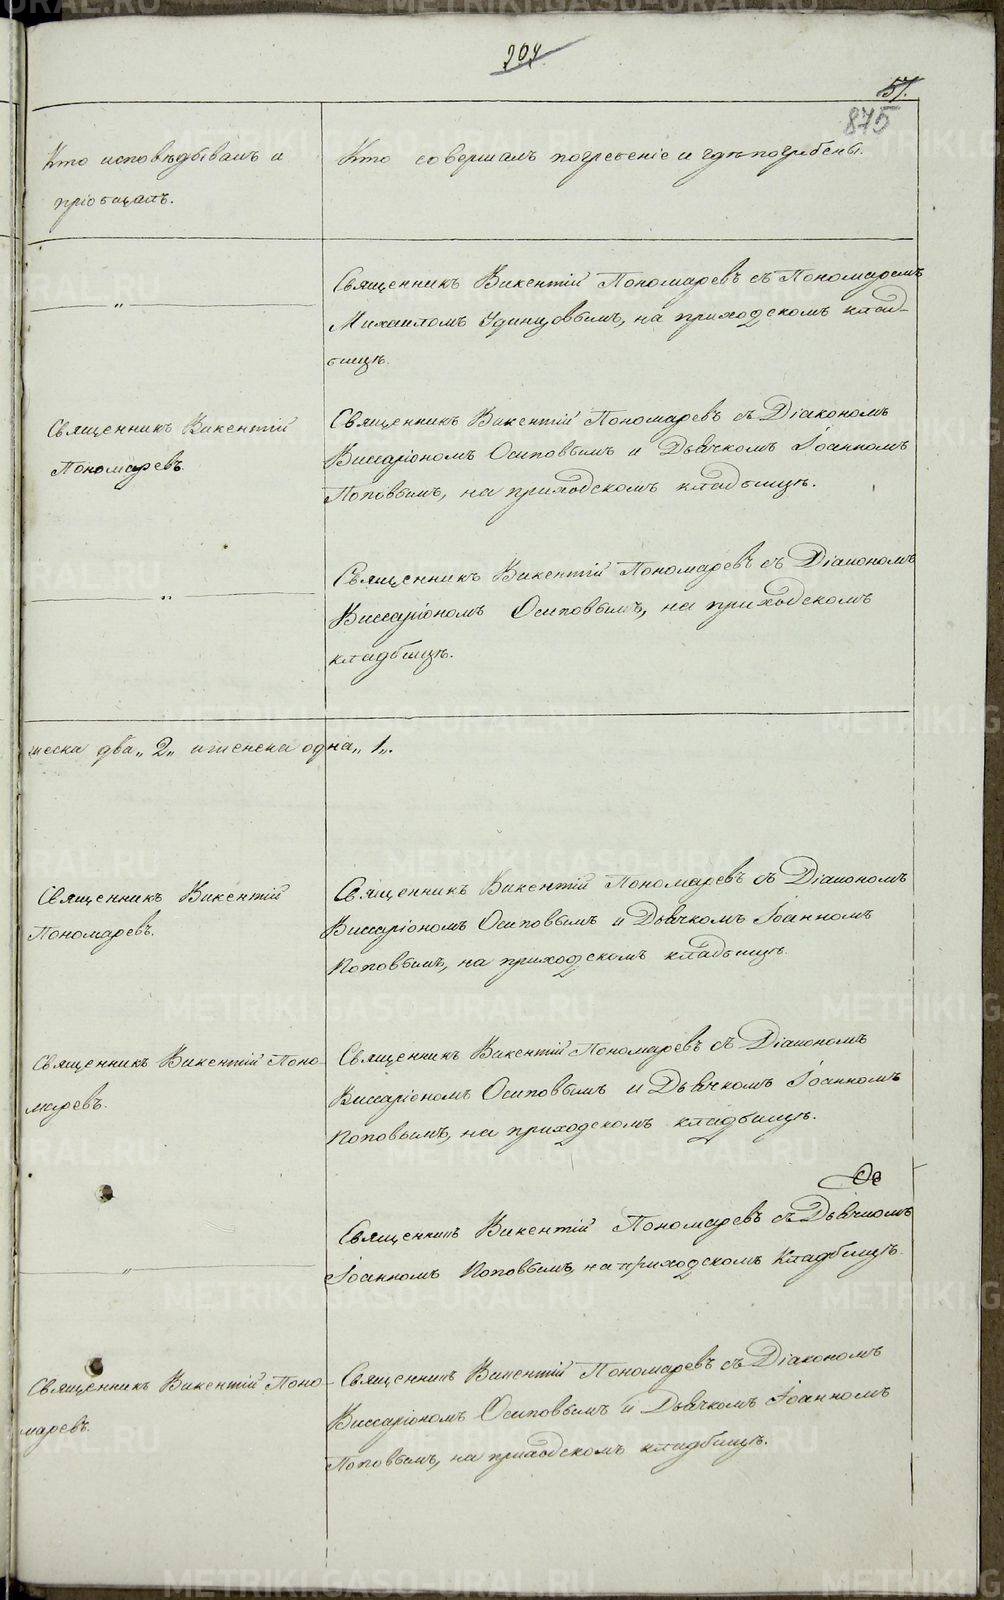 204
57.
875
Кто исповѣдывалъ и
пріобщалъ.
Кто совершалъ погребеніе и гдѣ погребены.
"
Священникъ Викентій Пономаревъ съ Пономаремъ
Михаиломъ Удинцовымъ, на приходскомъ клад-
бищѣ.
Священникъ Викентій
Пономаревъ.
Священникъ Викентій Пономаревъ съ Діакономъ
Виссаріономъ Осиповымъ и Дьячкомъ Іоанномъ
Поповымъ, на приходскомъ кладбищѣ.
"
Священникъ Викентій Пономаревъ съ Діакономъ
Виссаріономъ Осиповымъ, на приходскомъ
кладбищѣ.
жеска два „2„ и женска одна „1„.
Священникъ Викентій
Пономаревъ.
Священникъ Викентій Пономаревъ съ Діакономъ
Виссаріономъ Осиповымъ и Дьячкомъ Іоанномъ
Поповымъ, на приходскомъ кладбищѣ.
Священникъ Викентій Поно-
маревъ.
Священникъ Викентій Пономаревъ съ Діакономъ
Виссаріономъ Осиповымъ и Дьячкомъ Іоанномъ
Поповымъ, на приходскомъ кладбищѣ.
"
Священникъ Викентій Пономаревъ съ Дьячкомъ
Іоанномъ Поповымъ, на приходскомъ кладбищѣ.
Священникъ Викентій Поно-
маревъ.
Священникъ Викентій Пономаревъ съ Діакономъ
Виссаріономъ Осиповымъ и Дьячкомъ Іоанномъ
Поповымъ, на приходскомъ кладбищѣ.
METRIKI.GASO-URAL.RU